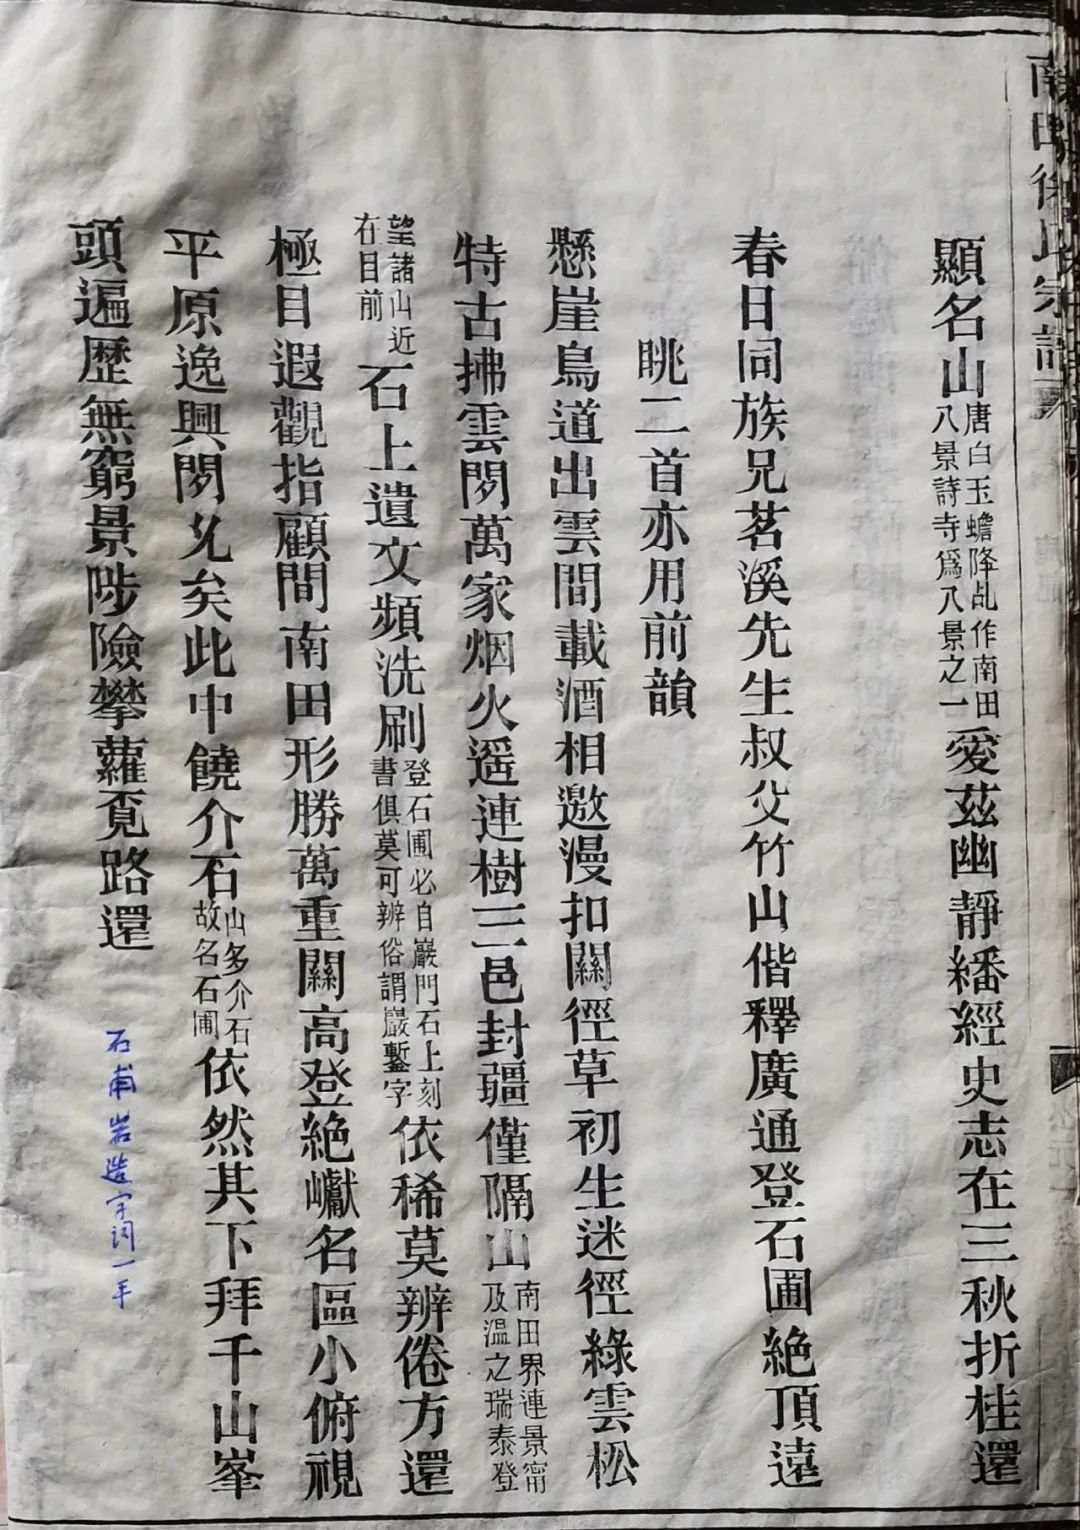 南田徐氏宗譜
顯名山唐白玉蟾降乩作南田八景詩寺爲八景之一愛茲幽靜繙經史志在三秋折桂還
春日同族兄茗溪先生叔父竹山偕釋廣通登石圃絶頂遠
眺二首亦用前韻
懸崖鳥道出雲間載酒相邀漫扣關徑草初生迷徑綠雲松
特古拂雲閒萬家烟火遥連樹三邑封疆僅隔山南田界連景甯及温之瑞泰登
望諸山近在目前石上遺文頻洗刷登石圃必自巖門石上刻書俱莫可辨俗謂巖鏨字依稀莫辨倦方還
極目遐觀指顧間南田形勝萬重關高登絶巘名區小俯視
平原逸興閒允矣此中饒介石山多介石故名石圃依然其下拜千山峯
頭遍歴無窮景陟險攀蘿覓路還
石甫岩造字词一手